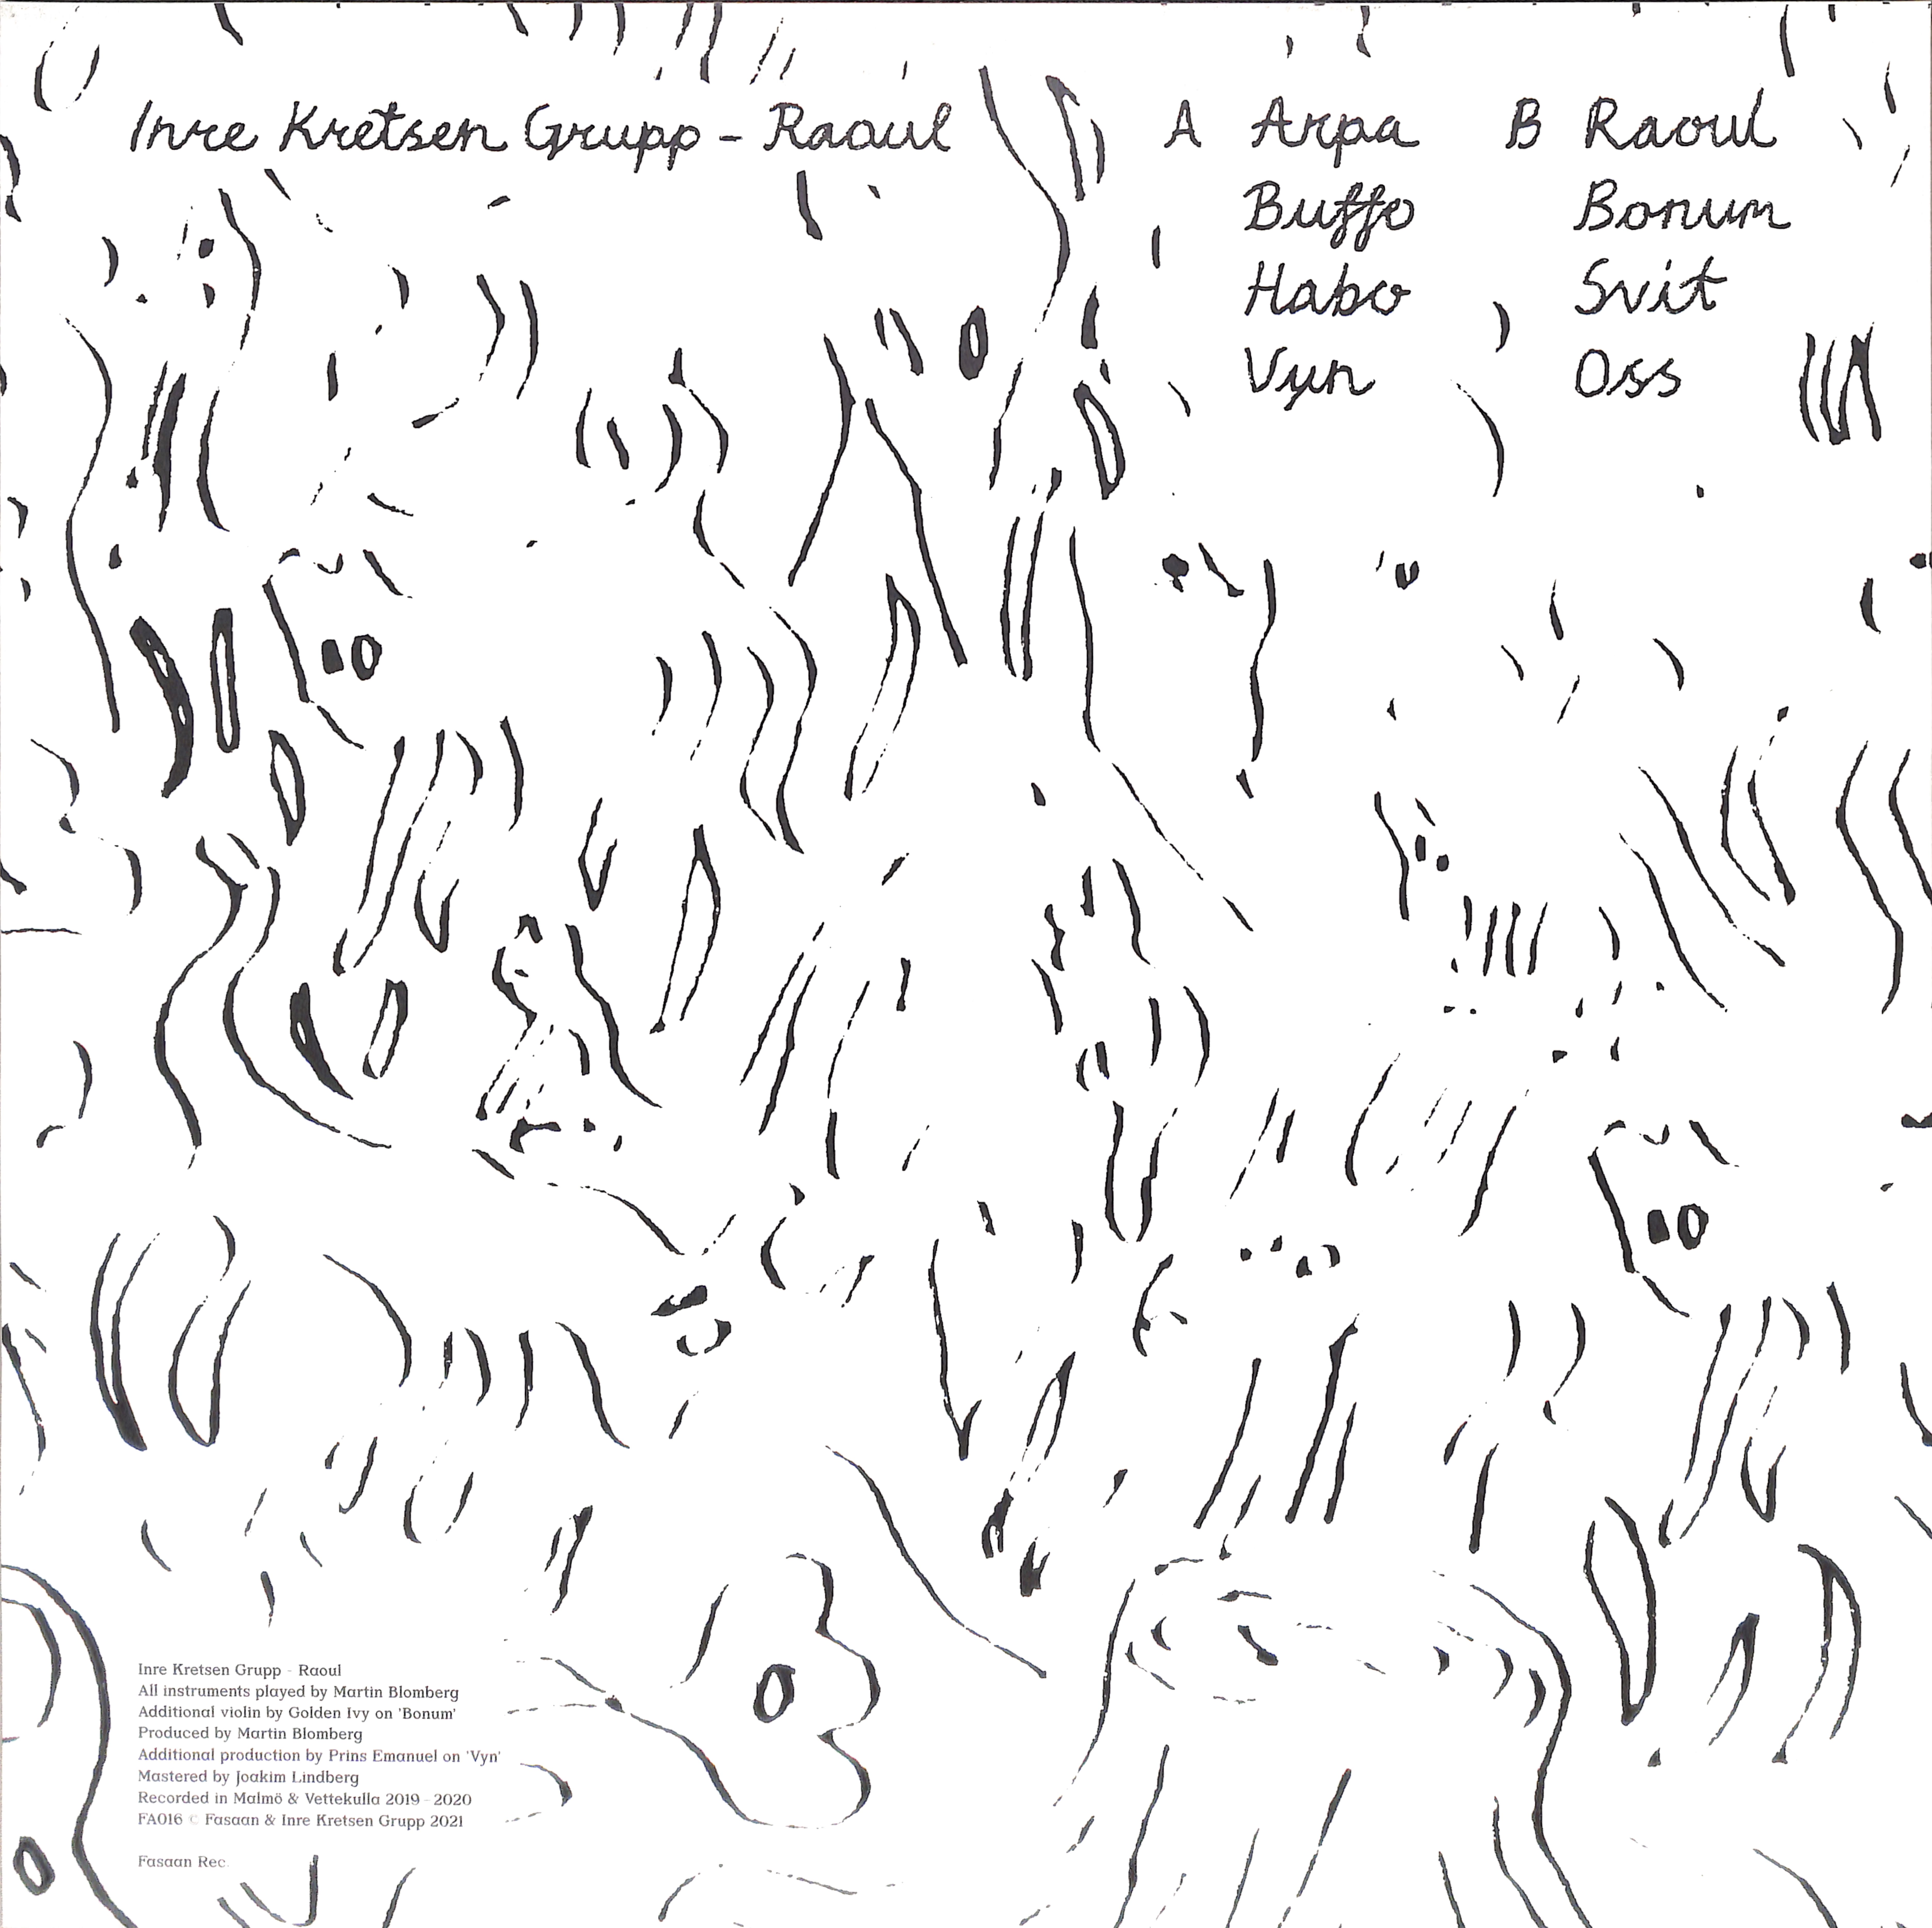 Inre Kretsen Grupp – Raoul
A Arpa
Buffo
Habo
Vyn
B Raoul
Bonum
Svit
Oss
Inre Kretsen Grupp - Raoul
All instruments played by Martin Blomberg
Additional violin by Golden Ivy on 'Bonum'
Produced by Martin Blomberg
Additional production by Prins Emanuel on 'Vyn'
Mastered by Joakim Lindberg
Recorded in Malmö & Vettekulla 2019 - 2020
FA016 © Fasaan & Inre Kretsen Grupp 2021
Fasaan Rec.